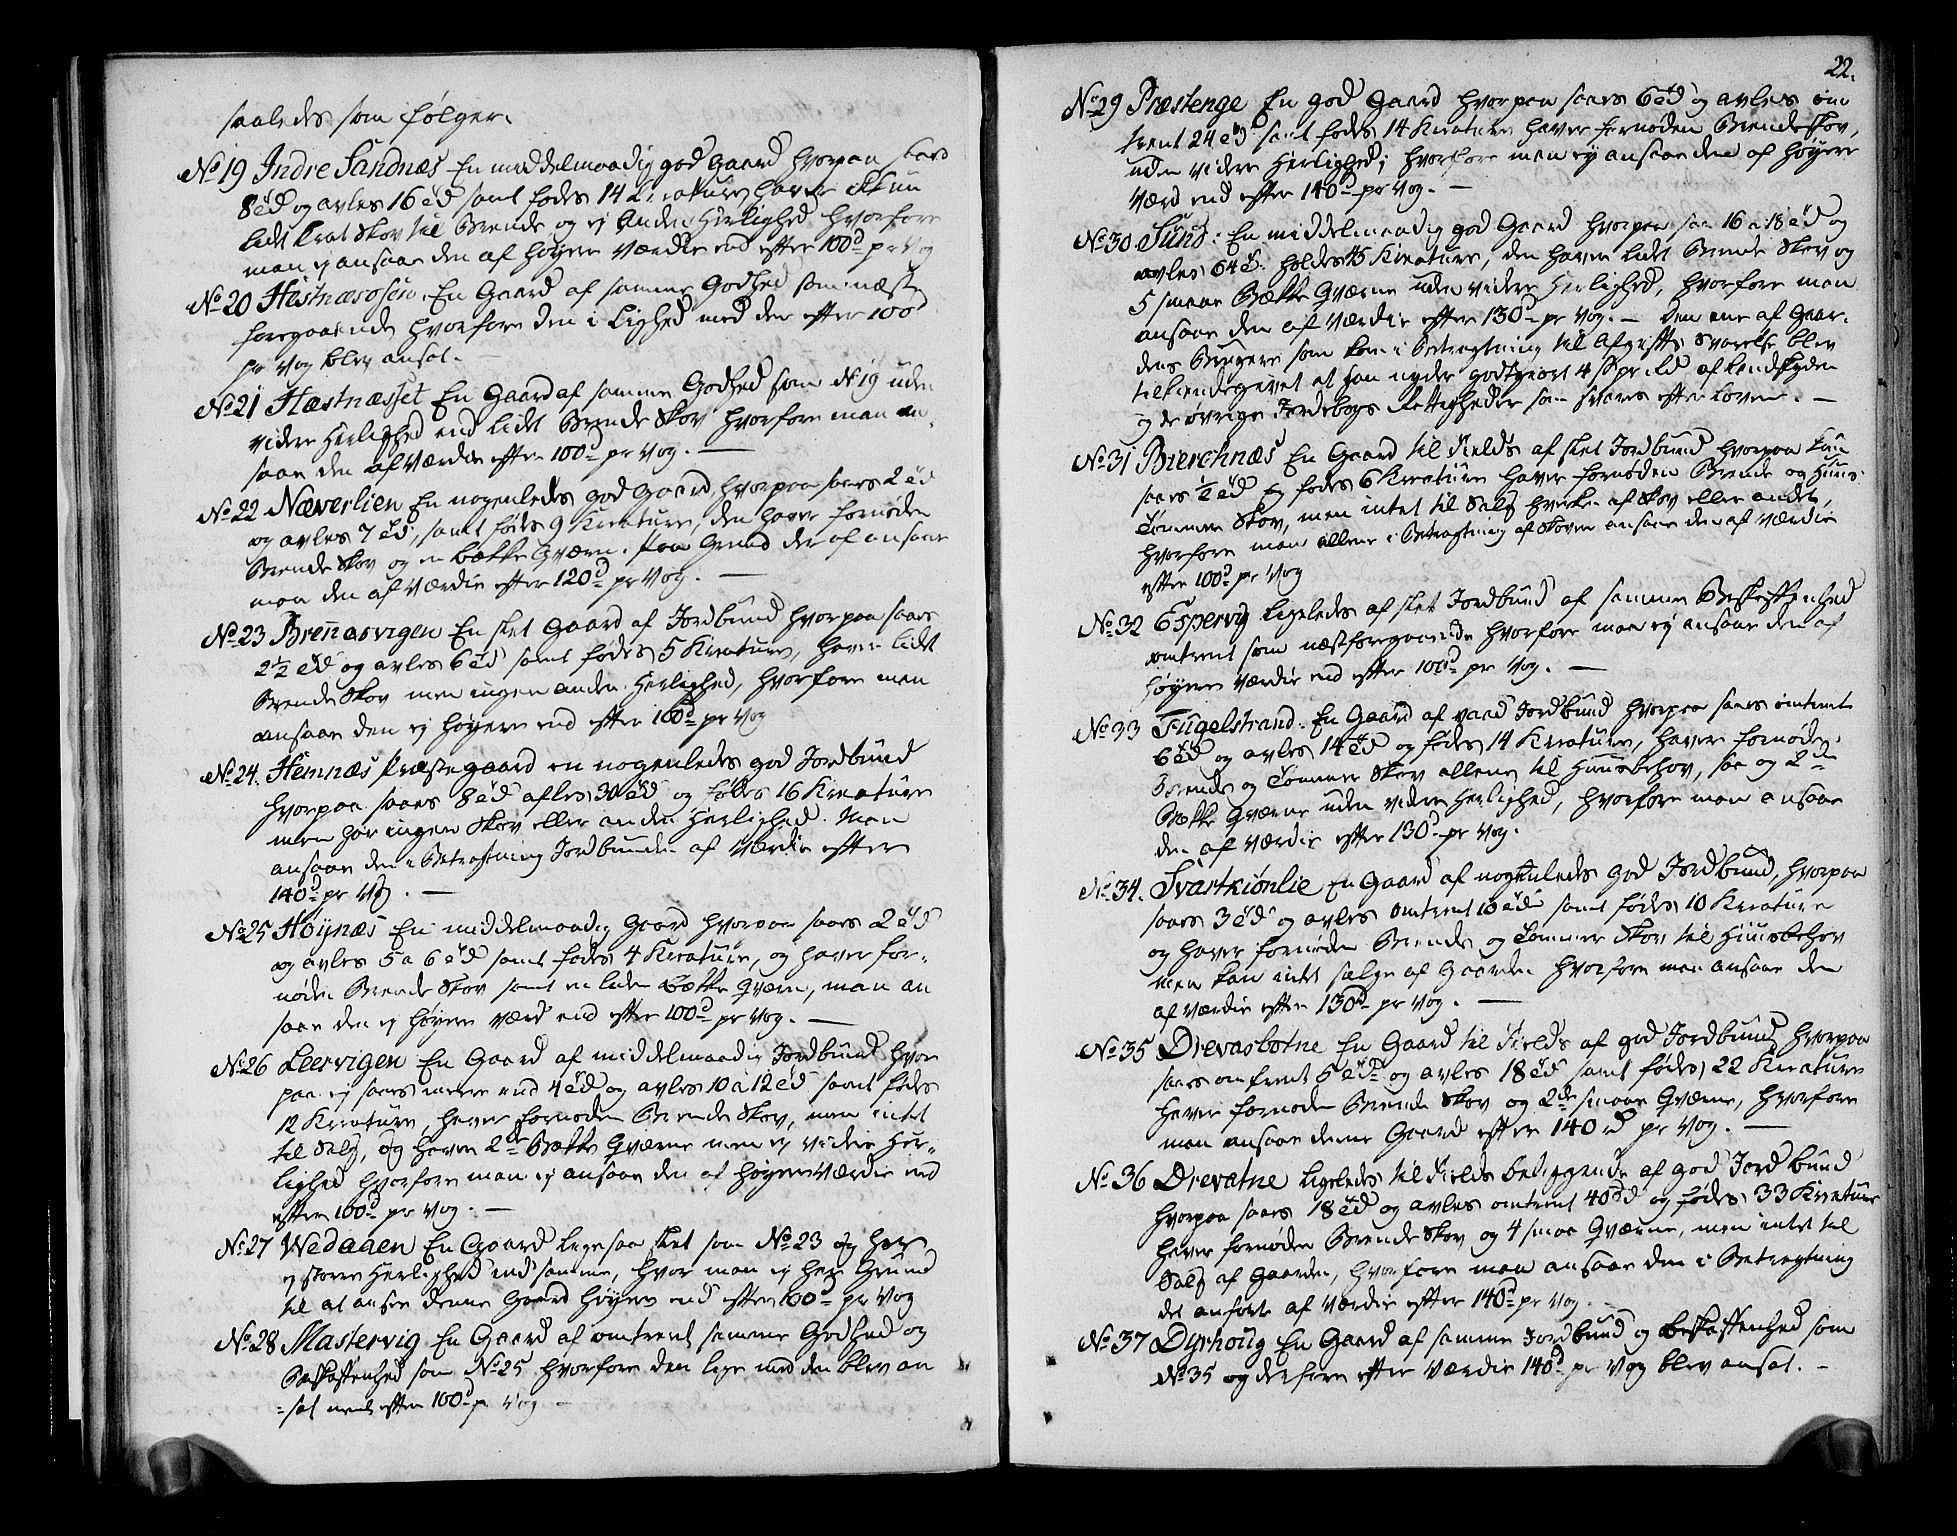 saaledes som følger.
No 19 Indre Sandnæs En middelmaadig god Gaard hvorpaa saaes
8 Td og avles 16 Td samt fødes 14 Kreature, haver ikkun
lidt Krat Skov til Brende og ej anden Herlighed hvorfore
man ej ansaae den af høyere Værdie end efter 100 d pr Vog
No 20 Hæstnæsosen. En Gaard af samme Godhed som næst
foregaaende hvorfore den i Lighed med den efter 100 d
pr Vog blev ansat. –
No 21 Hæstnæsset En Gaard af samme Godhed som No 19 uden
videre Herlighed end lidt Brende Skov hvorfore man an-
saae den af Værdie efter 100 d pr Vog. –
No 22 Næverlien En nogenledes god Gaard, hvorpaa saaes 2 Td
og avles 7 Td, samt fødes 9 Kreature, den haver fornøden
Brende Skov og en Bække Qværn. Paa Grund der af ansaae
man den af Værdie efter 120 d pr Vog. –
No 23 Brennasvigen En slet Gaard af Jordbund hvorpaa saaes
2½ Td og avles 6 Td samt fødes 5 Kreature, haver lidt
Brende Skov men ingen anden Herlighed, hvorfore man
ansaae den ej høyere end efter 100 d pr Vog
No 24. Hemnæs Præstegaard en nogenledes god Jordbund
hvorpaa saaes 8 Td afles 30 Td og fødes 16 Kreature
men har ingen Skov eller anden Herlighed. Man
ansaae den i Betragtning Jordbunden af Værdie efter
140 d pr Vog. –
No 25 Høynæs En middelmaadig Gaard hvorpaa saaes 2 Td
og avles 5 a 6 Td samt fødes 4 Kreature, og haver for-
nøden Brende Skov samt en liden Bække Qværn, man an
saae den ej høyere værd end efter 100 d pr Vog. –
No 26 Leervigen En Gaard af middelmaadig Jordbund hvor
paa ej saaes mere end 4 Td og avles 10 a 12 Td samt fødes
12 Kreature, haver fornøden Brende Skov, men intet
til Salg, og haver 2de Bække Qværne men ej videre Her-
lighed hvorfore man ej ansaae den af høyere Værdie end
efter 100 d pr Vog. –
No 27 Wedaaen En Gaard ligesaa slet som No 23 og har
ej større Herlighed end samme, hvor man ej har Grund
til at ansee denne Gaard høyere end efter 100 d pr Vog
No 28 Mastervig En Gaard af omtrent samme Godhed og
Beskaffenhed som No 25 hvorfore den lige med den blev an
-sat efter 100 d pr Vog –
22.
No 29 Præstenge En god Gaard hvorpaa saaes 6 Td og avles om
trent 24 Td samt fødes 14 Kreature haver fornøden Brendeskov,
uden videre Herlighed; hvorfore man ej ansaae den af høyere
Værd end efter 140 d pr Vog. –
No 30 Sund: En middelmaadig god Gaard hvorpaa saaes 16 a 18 Td og
avles 64 Td. holdes 45 Kreature, den haver lidt Brende Skov og
5 smaae Bække Qværne uden videre Herlighed, hvorfore man
ansaae den af Værdie efter 130 d pr Vog. – Den ene af Gaar-
dens Brugere som kom i Betragtning til Afgifts Svarelse blev
tilkiendegivet at han nyder godtgiort 4 s pr Rd af Landskylden
og de øvrige Jordebogs Rettigheder som svares efter Loven. –
No 31 Bierchnæs En Gaard til Fields af slet Jordbund hvorpaa kun
saaes ½ Td og fødes 6 Kreature haver fornøden Brende og Huus-
Tømmer Skov, men intet til Salg hverken af Skov eller andet,
hvorfore man allene i Betragtning af Skoven ansaae den af Værdie
efter 100 d pr Vog
No 32 Espervig ligeledes af slet Jordbund af samme Beskaffenhed
omtrent som næstforegaaende hvorfore man ej ansaae den af
høyere Værdie end efter 100 d pr Vog. –
No 33 Fugelstrand. En Gaard af vaad Jordbund hvorpaa saaes omtrent
6 Td og avles 14 Td og fødes 14 Kreature, haver fornøden
Brende og Tømmer Skov allene til Huusbehov, saa og 2de
Bække Qværne uden videre Herlighed, hvorfore man ansaae
den af Værdie efter 130 d pr Vog.
No 34. Svartkiønlie En Gaard af nogenledes god Jordbund, hvorpaa
saaes 3 Td og avles omtrent 10 Td samt fødes 10 Kreature
og haver fornøden Brende og Tømmer Skov til Huusbehov
men kan intet sælge af Gaarden hvorfore man ansaae den
af Værdie efter 130 d pr Vog. –
No 35 Drevasbotne En Gaard til Fields af god Jordbund, hvorpaa
saaes omtrent 5 Td og avles 18 Td samt fødes 22 Kreature
haver fornøden Brende Skov og 2de smaae Qværne, hvorfore
man ansaae denne Gaard efter 140 d pr Vog. –
No 36 Drevatne ligeledes til Fields beliggende af god Jordbund
hvorpaa saaes 18 Td og avles omtrent 40 Td og fødes 33 Kreature
haver fornøden Brende Skov og 4 smaae Qværne, men intet til
Salg af Gaarden, hvorfore man ansaae den i Betragtning
det anførte af Værdie efter 140 d pr Vog. –
No 37 Dyrhoug En Gaard af samme Jordbund og beskaffenhed som
No 35 og derfore efter Værdie 140 d pr Vog blev ansat. –